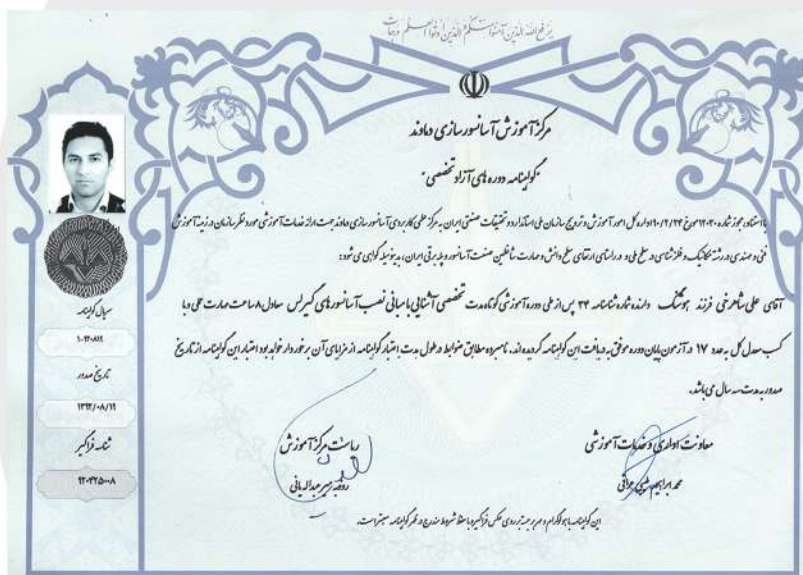 یرفع الله الذین آمنوا منکم الذین اوتوا العلم درجات
مرکز آموزش آسانسورسازی دماوند
"گواهینامه دوره های آزاد تخصصی"
با استناد مجوز شماره ۱۲۰۳۰ مورخ ۹۰/۲/۲۴ اداره کل امور آموزش و ترویج سازمان ملی استاندارد و تحقیقات صنعتی ایران به مرکز علمی کاربردی آسانسورسازی دماوند جهت ارائه خدمات آموزشی مورد نظر سازمان در زمینه آموزش
فنی و مهندسی در رشته مکانیک و فلزشناسی در سطح ملی و در راستای ارتقای سطح دانش و مهارت شاغلین صنعت آسانسور و پله برقی ایران، بدینوسیله گواهی می شود:
آقای علی شاهرخی فرزند هوشنگ دارنده شماره شناسنامه ۲۴ پس از طی دوره آموزشی کوتاه مدت تخصصی آشنایی با مبانی نصب آسانسورهای گیرلس معادل ۸ ساعت مهارت علمی و با
کسب معدل کل به عدد ۱۷ در آزمون پایان دوره موفق به دریافت این گواهینامه گردیده اند. نامبرده مطابق ضوابط در طول مدت اعتبار گواهینامه از مزایای آن برخوردار خواهد بود اعتبار این گواهینامه از تاریخ
صدور به مدت سه سال می باشد.
معاونت اداری و خدمات آموزشی
محمد ابراهیم
ریاست مرکز آموزش
سریال گواهینامه
تاریخ صدور
۱۳۹۲/۰۸/۱۹
شناسه فراگیر
۹۲۰۳۲۵۰۰۸
این گواهینامه با هولوگرام و مهر برجسته بر روی عکس فراگیر و با حفظ شروط مندرج در ظهر گواهینامه معتبر است.